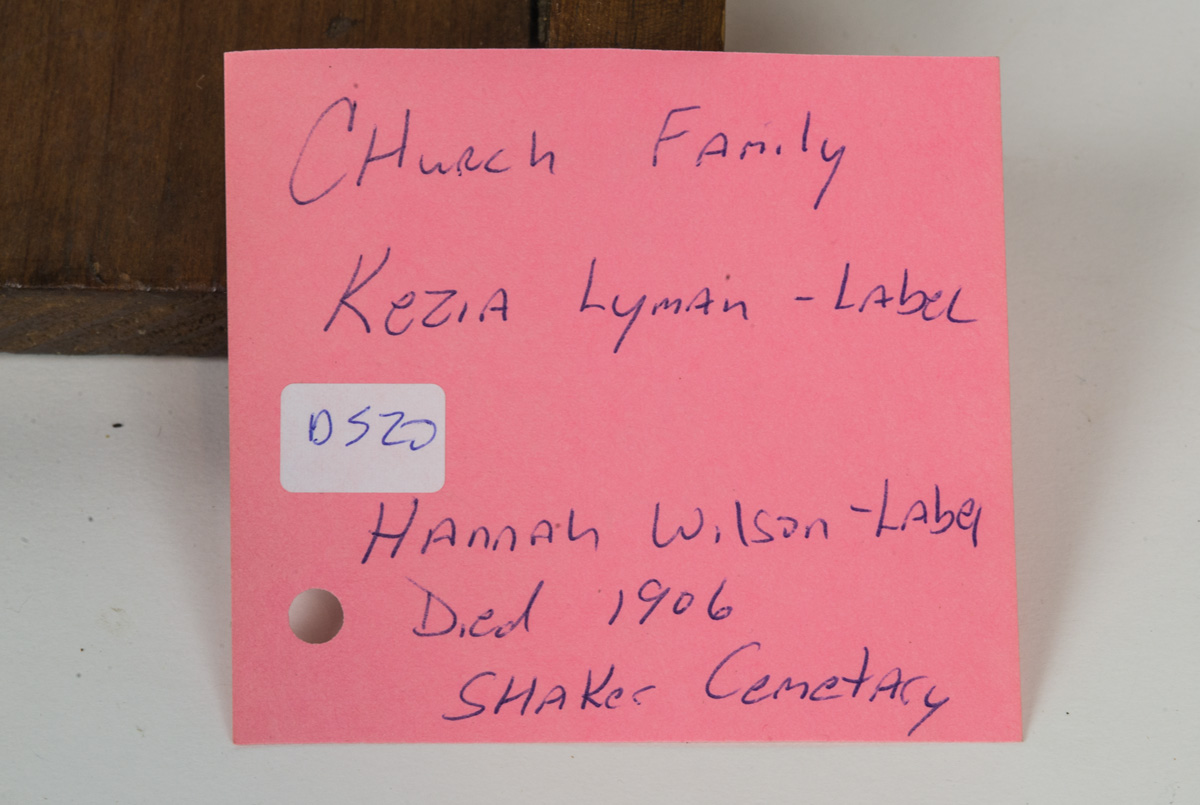 CHurch Family
Kezia Lyman - Label
D520
Hannah Wilson - Label
Died 1906
SHAKer Cemetary